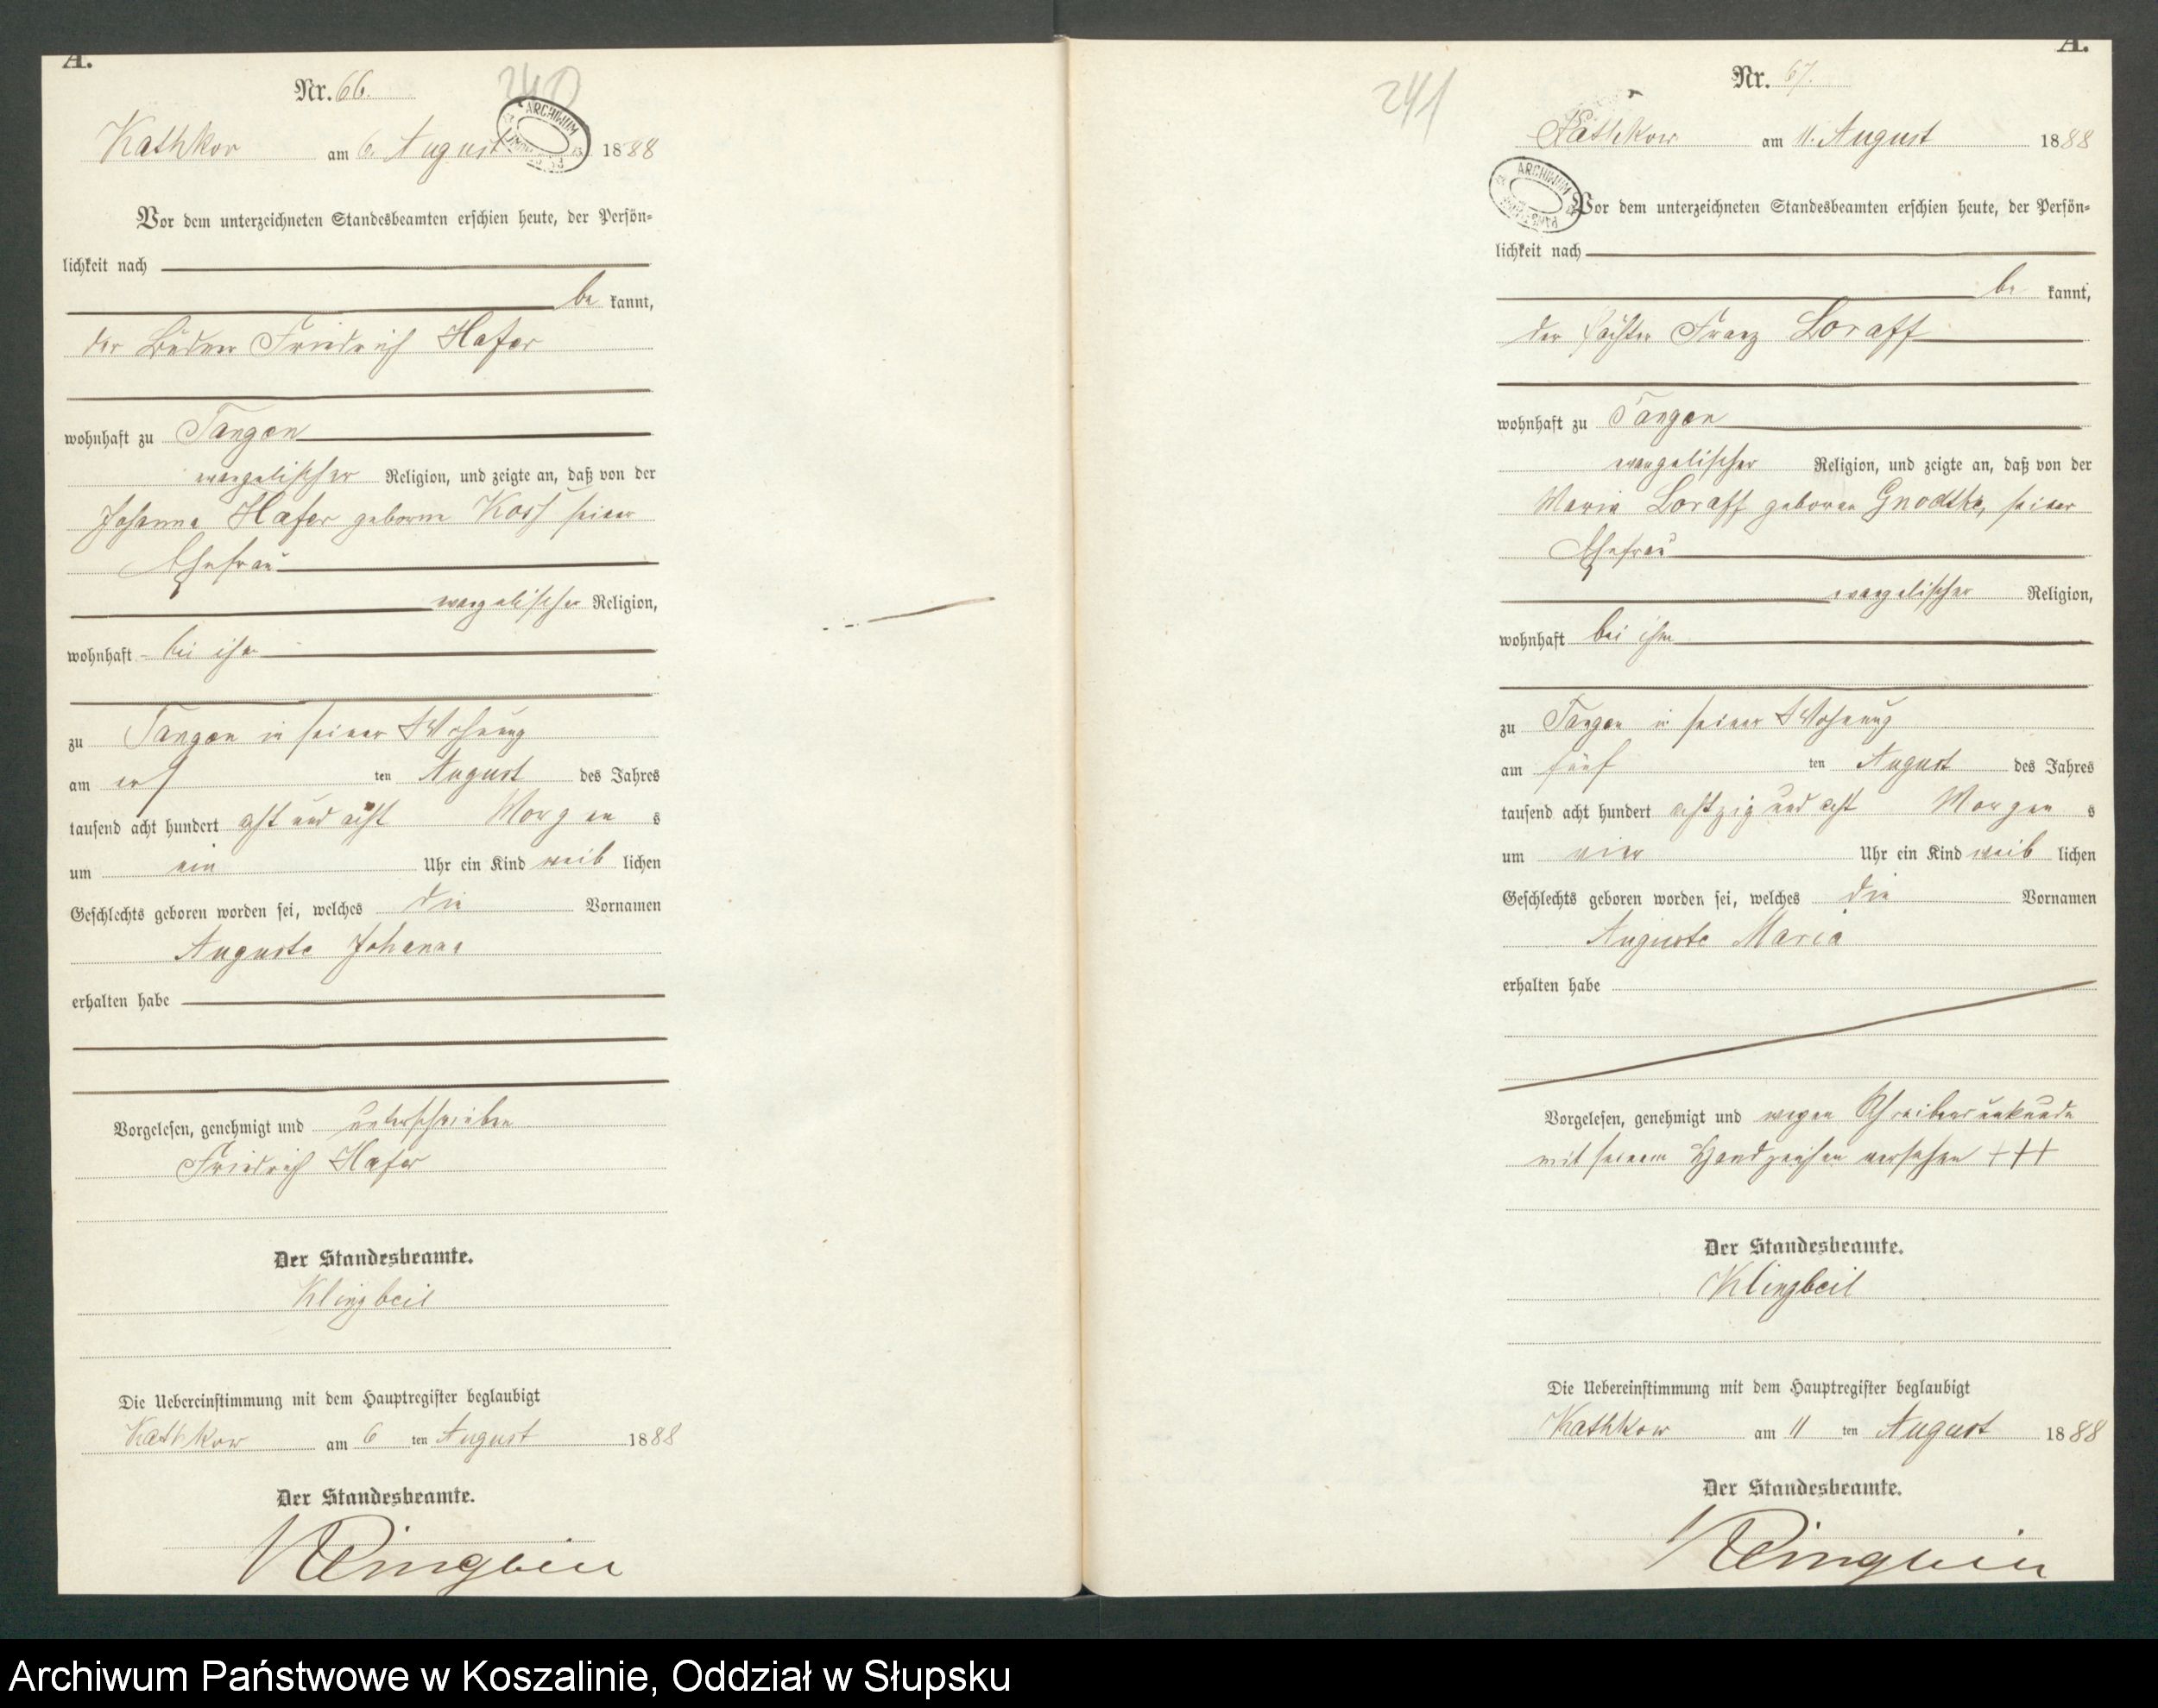 A.
Nr. 66.
240
ARCHIWUM
Kathkow am 6. August 1888
Vor dem unterzeichneten Standesbeamten erschien heute, der Persön=
lichkeit nach
be kannt,
der Büdner Friedrich Hafer
wohnhaft zu Tangen
evangelischer Religion, und zeigte an, daß von der
Johanna Hafer geborne Koss seiner
Ehefrau
evangelischer Religion,
wohnhaft bei ihm
zu Tangen in seiner Wohnung
am ten August des Jahres
tausend acht hundert acht und acht Morgen s
um ein Uhr ein Kind weib lichen
Geschlechts geboren worden sei, welches die Vornamen
Auguste Johanna
erhalten habe
Vorgelesen, genehmigt und unterschrieben
Friedrich Hafer
Der Standesbeamte.
Klingbeil
Die Uebereinstimmung mit dem Hauptregister beglaubigt
Kathkow am 6 ten August 1888
Der Standesbeamte.
Klingbeil
A.
Nr. 67.
241
Kathkow am 11. August 1888
ARCHIWUM
Vor dem unterzeichneten Standesbeamten erschien heute, der Persön=
lichkeit nach
be kannt,
der Pächter Franz Loraff
wohnhaft zu Tangen
evangelischer Religion, und zeigte an, daß von der
Maria Loraff geboren Gnodtke, seiner
Ehefrau
evangelischer Religion,
wohnhaft bei ihm
zu Tangen in seiner Wohnung
am fünf ten August des Jahres
tausend acht hundert achtzig und acht Morgen s
um vier Uhr ein Kind weib lichen
Geschlechts geboren worden sei, welches die Vornamen
Auguste Maria
erhalten habe
Vorgelesen, genehmigt und wegen Schreibensunkunde
mit seinem Handzeichen versehen +++
Der Standesbeamte.
Klingbeil
Die Uebereinstimmung mit dem Hauptregister beglaubigt
Kathkow am 11 ten August 1888
Der Standesbeamte.
Klingbeil
Archiwum Państwowe w Koszalinie, Oddział w Słupsku